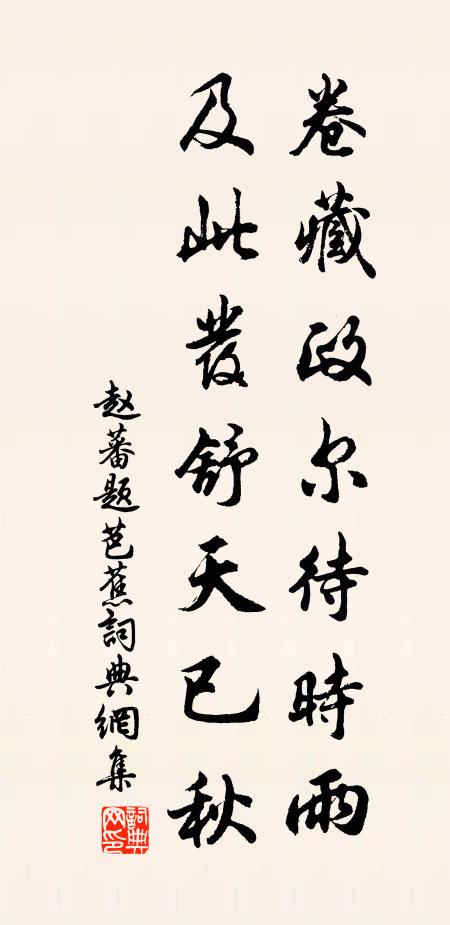 卷藏政尔待時雨
及此發舒天已秋
赵蕃題芭蕉詞典網集
詞典网印